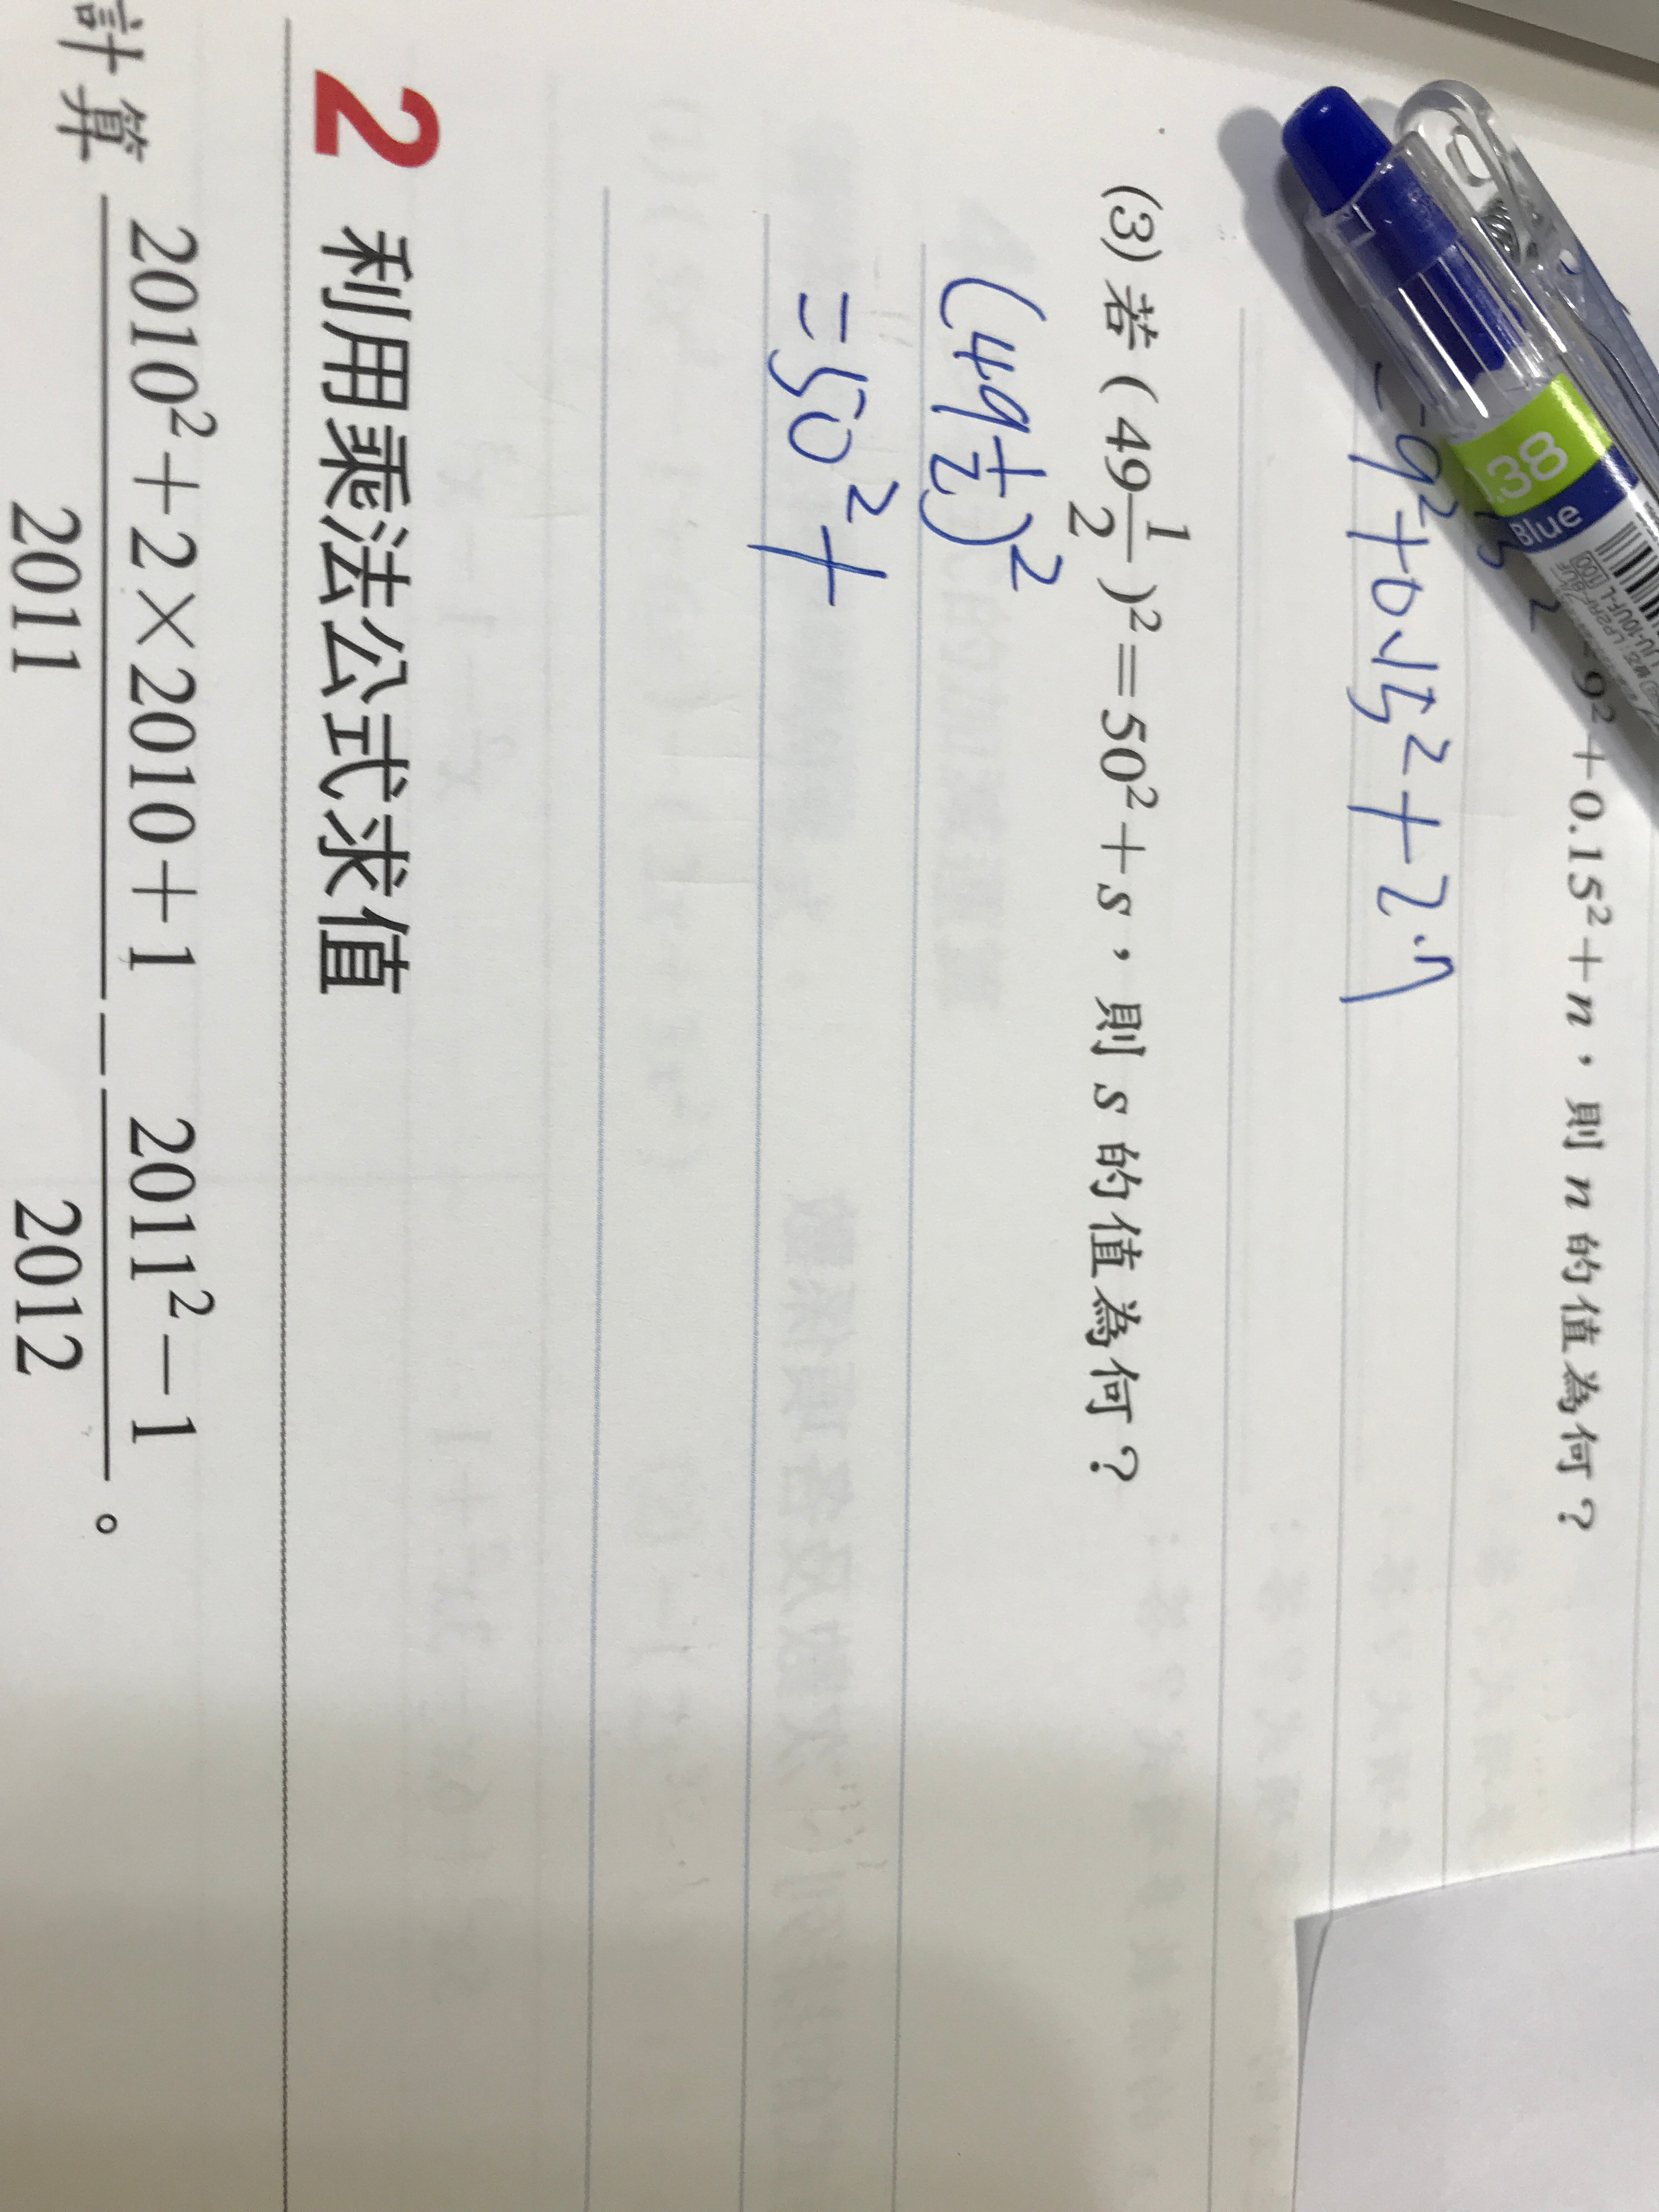 9²+0.15²+n,則 n 的值為何?
=9²+0.15²+2.7
(3) 若 ( 49 1/2 )²=50²+s,則 s 的值為何?
(49 1/2)²
=50²+
2 利用乘法公式求值
計算 (2010²+2×2010+1)/2011 − (2011²−1)/2012 。
.38
Blue